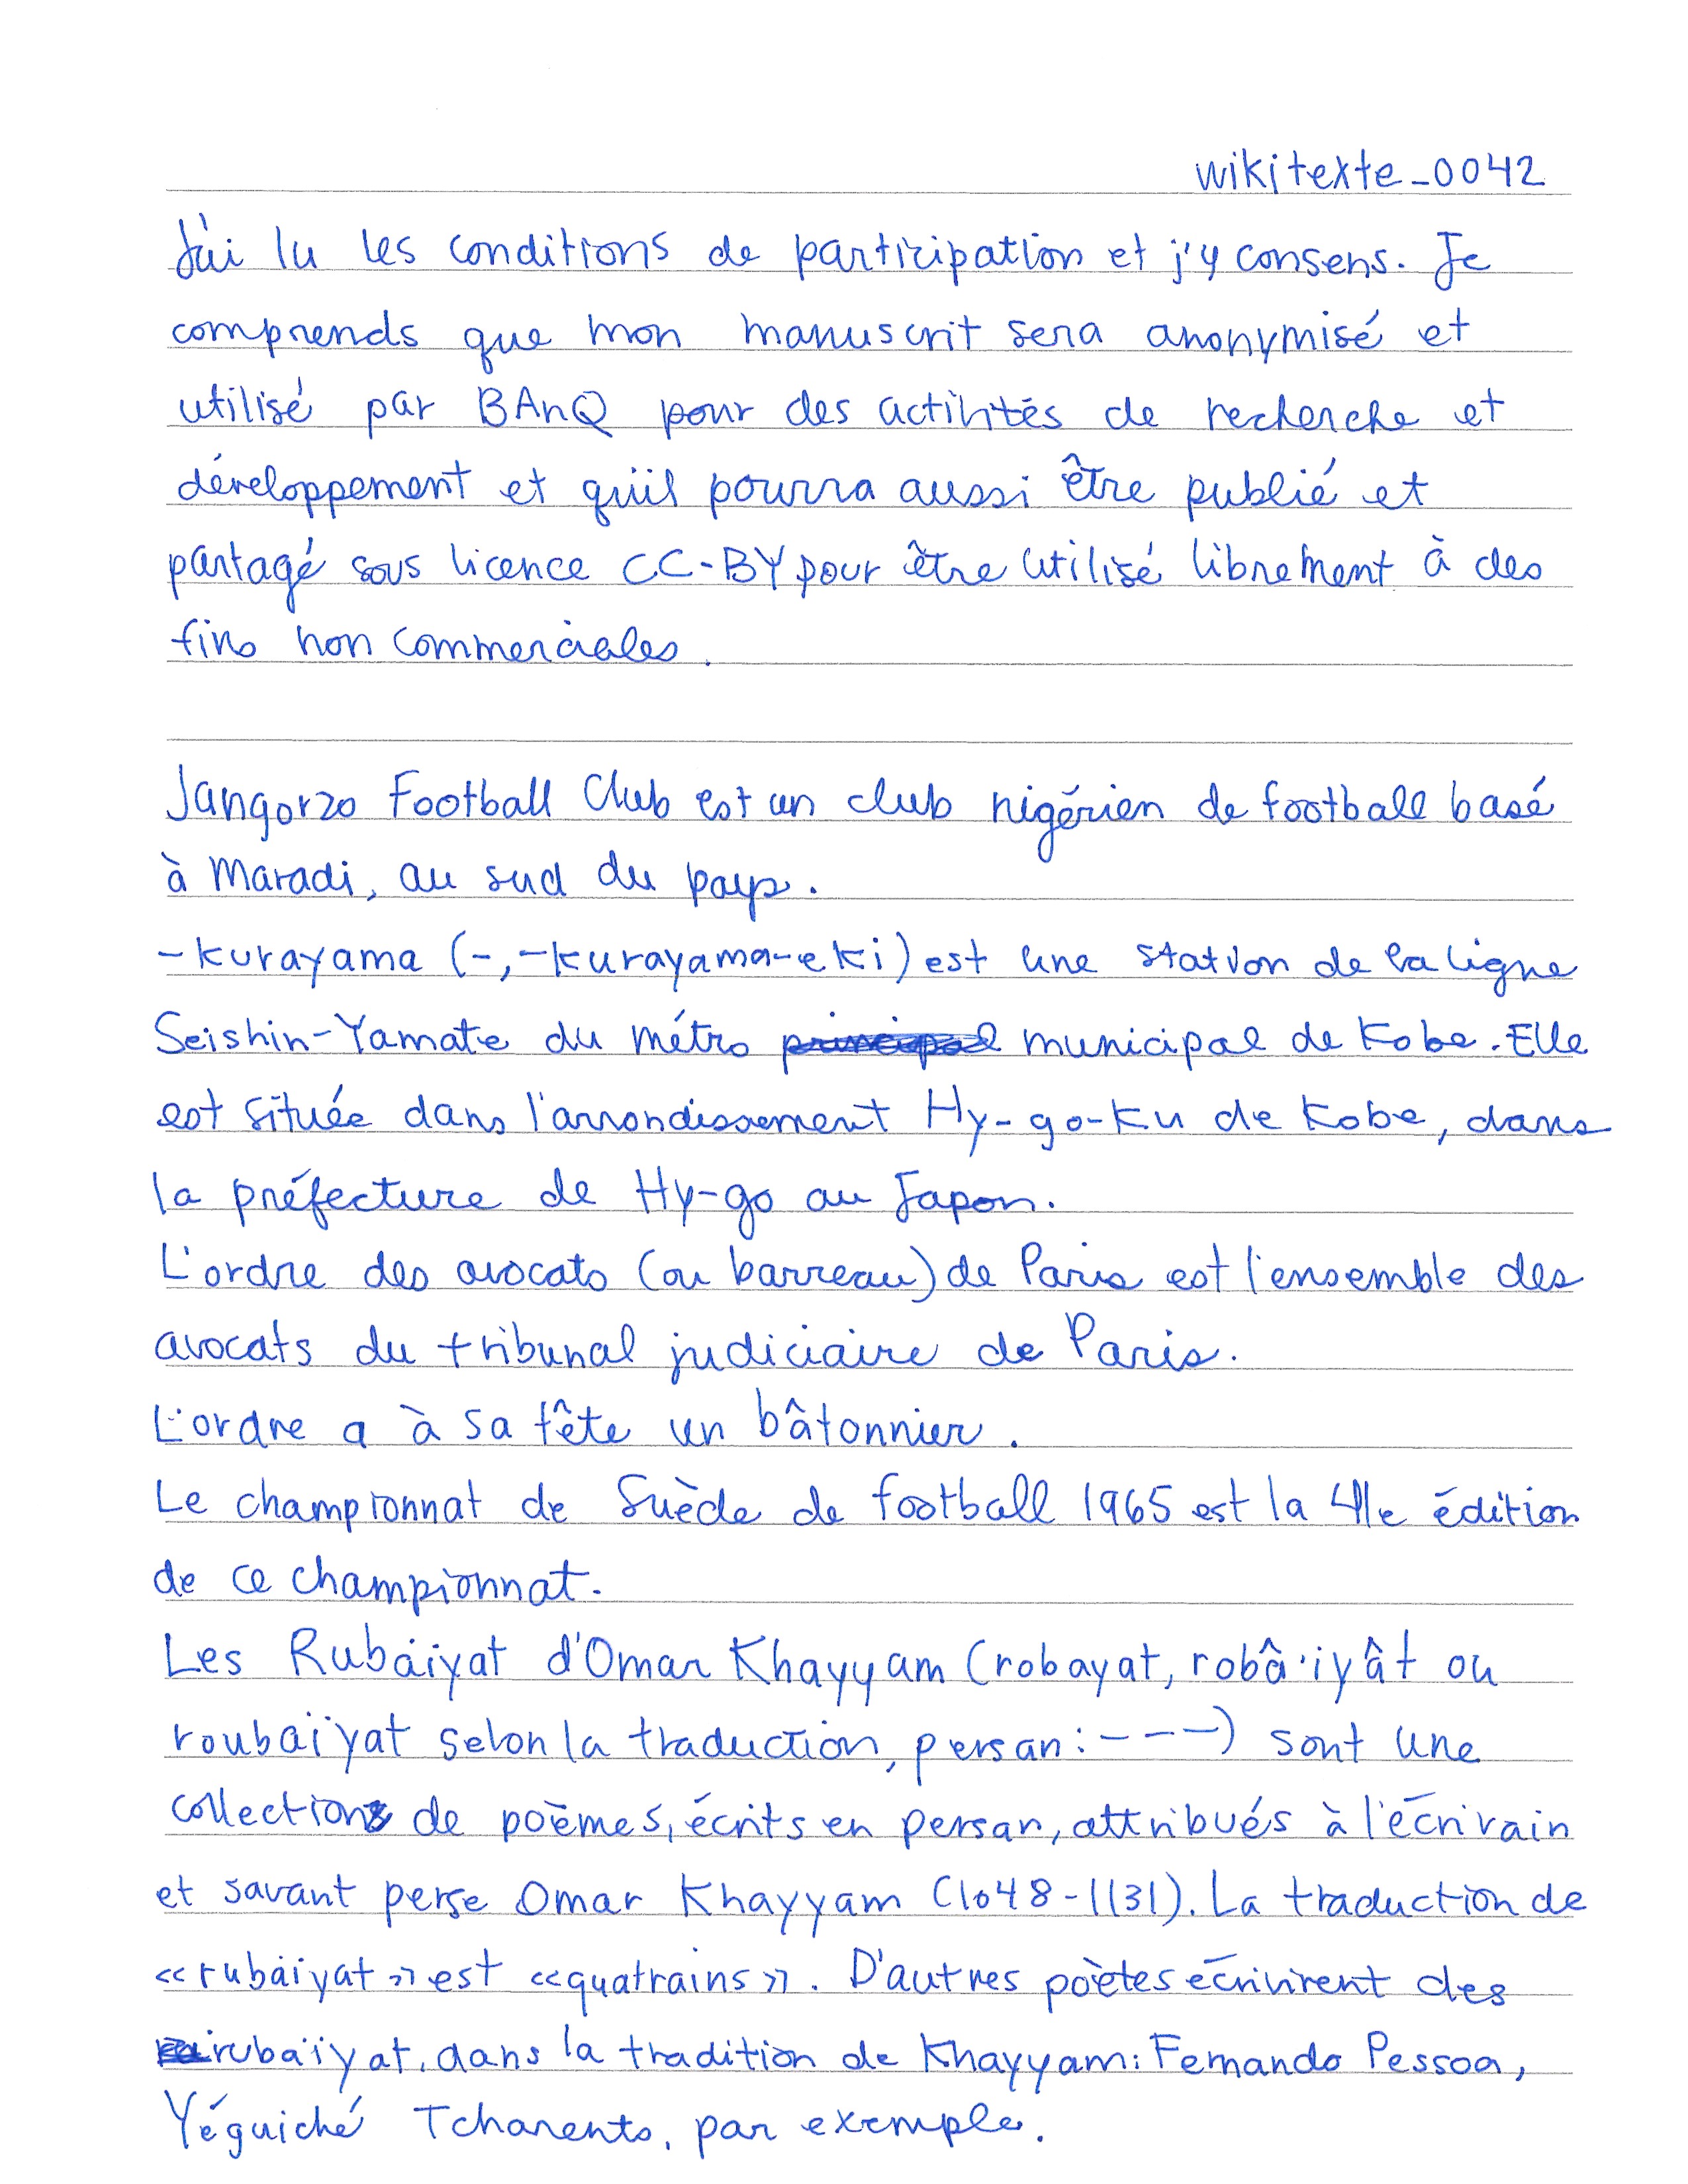 wikitexte_0042
J'ai lu les conditions de participation et j'y consens. Je
comprends que mon manuscrit sera anonymisé et
utilisé par BAnQ pour des activités de recherche et
développement et qu'il pourra aussi être publié et
partagé sous licence CC-BY pour être utilisé librement à des
fins non commerciales.
Jangorzo Football Club est un club nigérien de football basé
à Maradi, au sud du pays.
-kurayama (-,-kurayama-eki) est une station de la ligne
Seishin-Yamate du métro principal municipal de Kobe. Elle
est située dans l'arrondissement Hy-go-ku de Kobe, dans
la préfecture de Hy-go au Japon.
L'ordre des avocats (ou barreau) de Paris est l'ensemble des
avocats du tribunal judiciaire de Paris.
L'ordre a à sa tête un bâtonnier.
Le championnat de Suède de football 1965 est la 41e édition
de ce championnat.
Les Rubáiyat d'Omar Khayyam (robayat, robâ'iyât ou
roubaïyat selon la traduction, persan : ---) sont une
collection de poèmes, écrits en persan, attribués à l'écrivain
et savant perse Omar Khayyam (1048-1131). La traduction de
«rubáiyat» est «quatrains». D'autres poètes écrivirent des
rubaïyat, dans la tradition de Khayyam: Fernando Pessoa,
Yéguiché Tcharents, par exemple.